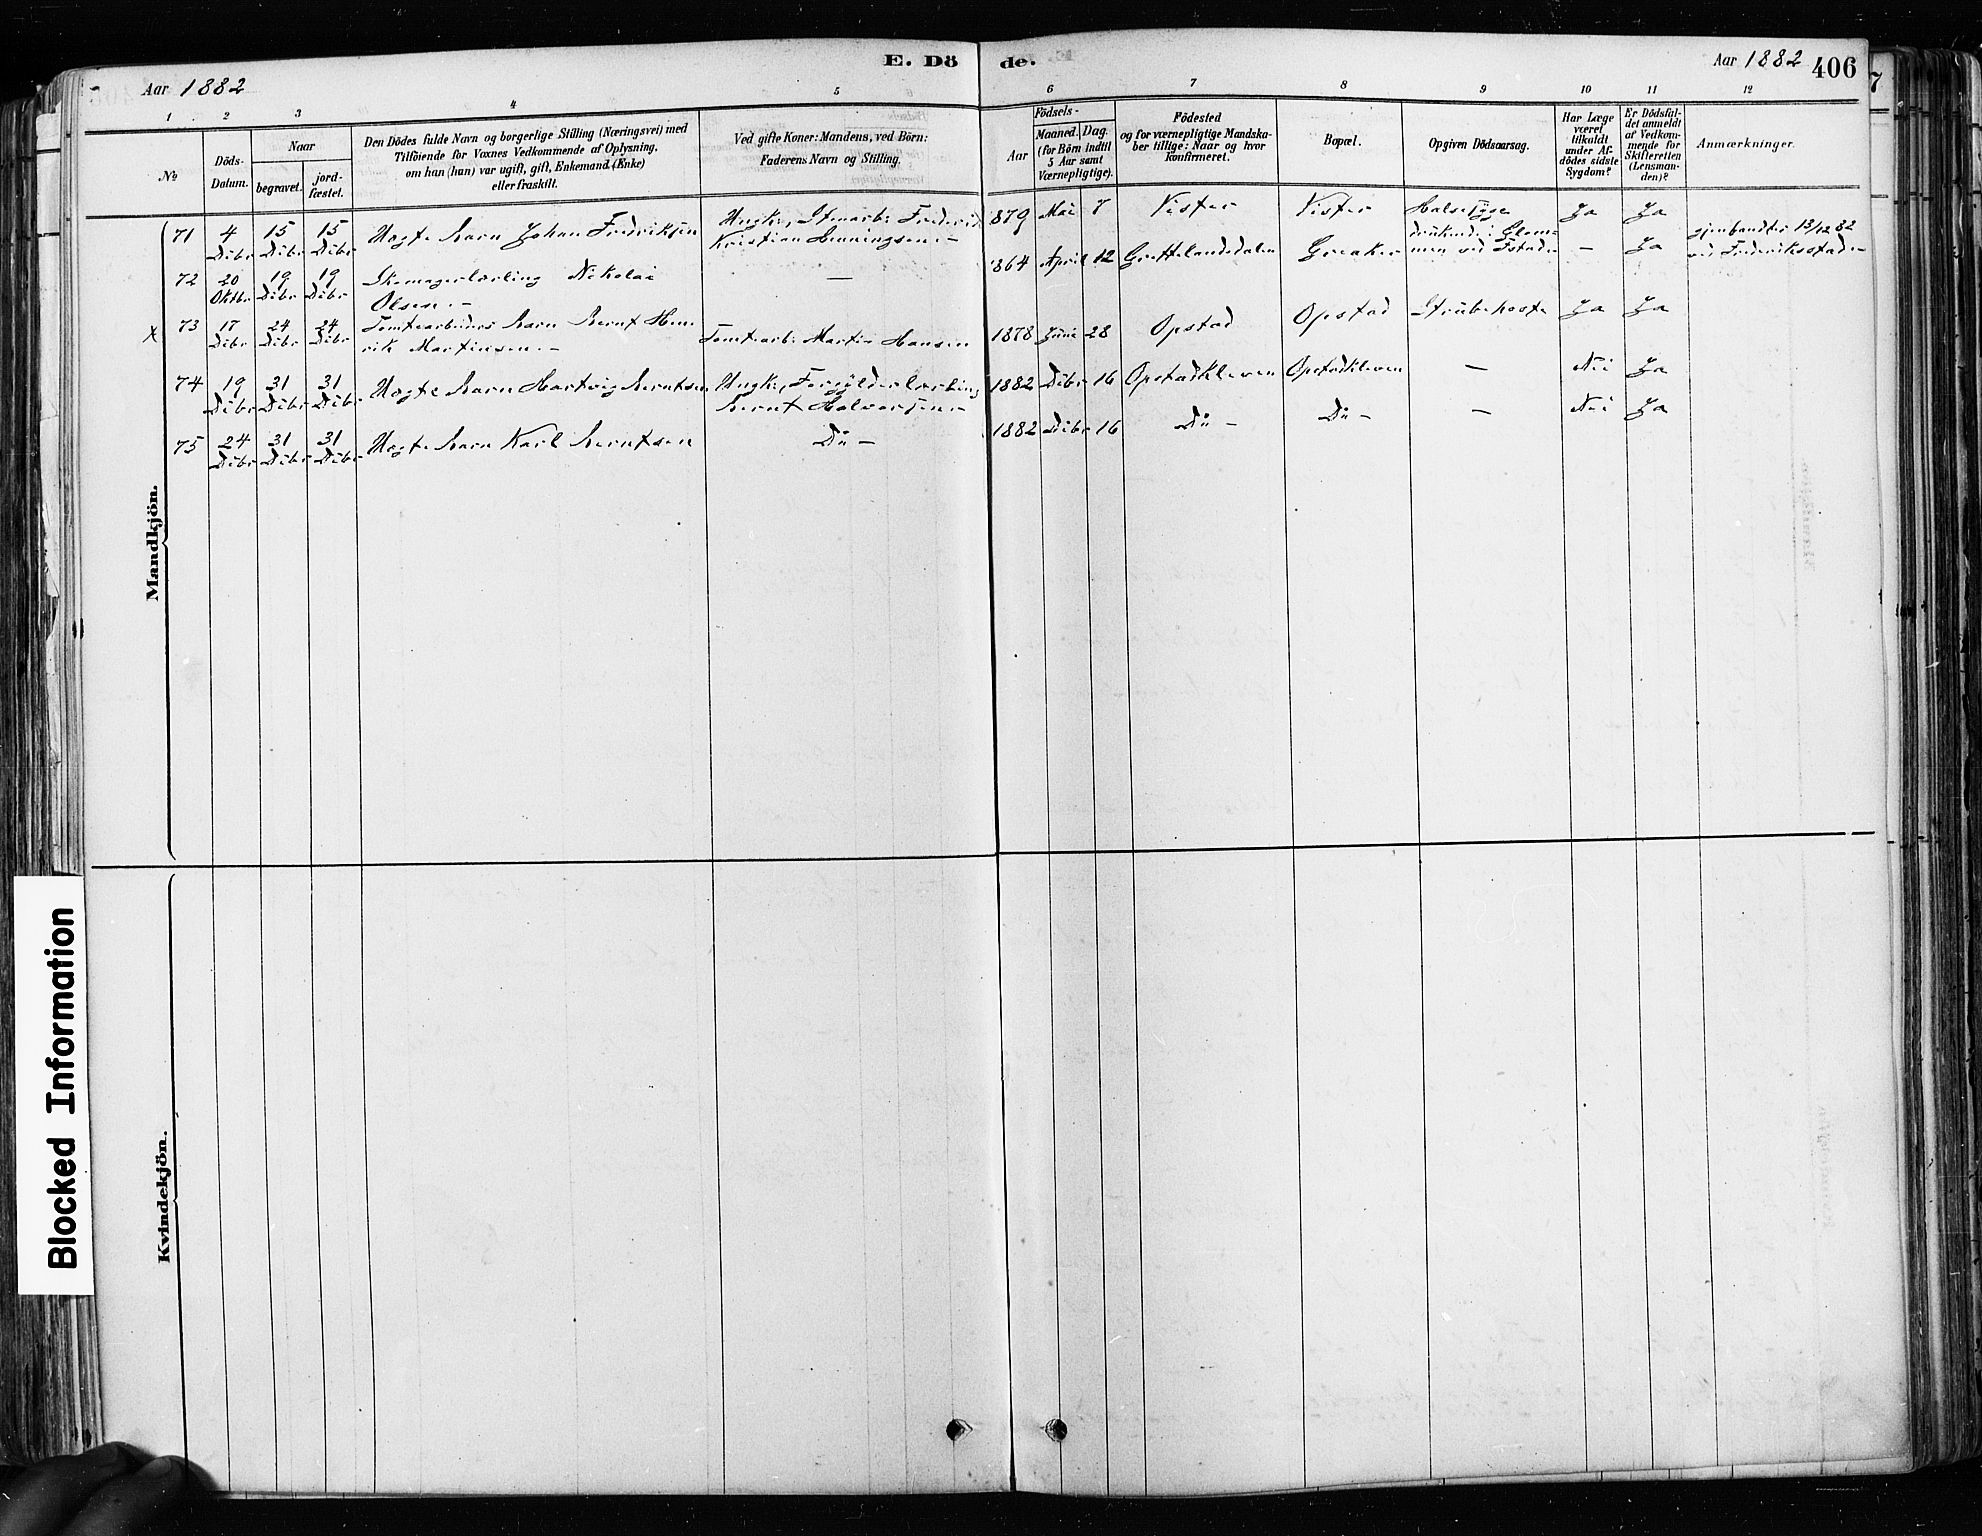 E. Dö de.
Aar 1882
Aar 1882
406
7
1 2 3 4 5 6 7 8 9 10 11 12
№
Döds-
Datum.
Naar
begravet.
jord-
fæstet.
Den Dödes fulde Navn og borgerlige Stilling (Næringsvei) med
Tilföiende for Voxnes Vedkommende af Oplysning,
om han (hun) var ugift, gift, Enkemand (Enke)
eller fraskilt.
Ved gifte Koner: Mandens, ved Börn:
Faderens Navn og Stilling.
Födsels-
Aar
Maaned.
Dag.
(for Börn indtil
5 Aar samt
Værnepligtige).
Födested
og for værnepligtige Mandska-
ber tillige: Naar og hvor
konfirmeret.
Bopæl.
Opgiven Dödsaarsag.
Har Læge
været
tilkaldt
under Af-
dödes sidste
Sygdom?
Er Dödsfal-
det anmeldt
af Vedkom-
mende for
Skifteretten
(Lensman-
den)?
Anmærkninger.
71 4 Dcbr 15 Dcbr 15 Dcbr Uægte Barn Johan Fredriksen Ungk., Stenarb. Frederik
Kristian Henningsen.- 879 Mai 7 Vister Vister Halssyge Ja Ja
72 20 Oktbr 19 Dcbr 19 Dcbr Skomagerlærling Nikolai
Olsen.- — 864 April 12 Grettelandsdalen Greaker druknet i Glom-
men ved Fstad - — Ja 13/12 82
ved Frederiksstad -
x 73 17 Dcbr 24 Dcbr 24 Dcbr Tomtearbeiders Barn Bernt Hen-
rik Martinsen.- Tomtearb. Martin Hansen 1878 Juni 28 Opstad Opstad Strubehoste Ja Ja
74 19 Dcbr 31 Dcbr 31 Dcbr Uægte Barn Hartvig Berntsen Ungk., Forgylderlærling
Bernt Halvorsen - 1882 Dcbr 16 Opstadkleven Opstadkleven — Nei Ja
75 24 Dcbr 31 Dcbr 31 Dcbr Uægte Barn Karl Berntsen Do - 1882 Dcbr 16 Do - Do - — Nei Ja
Mandkjön.
Kvindekjön.
Blocked Information